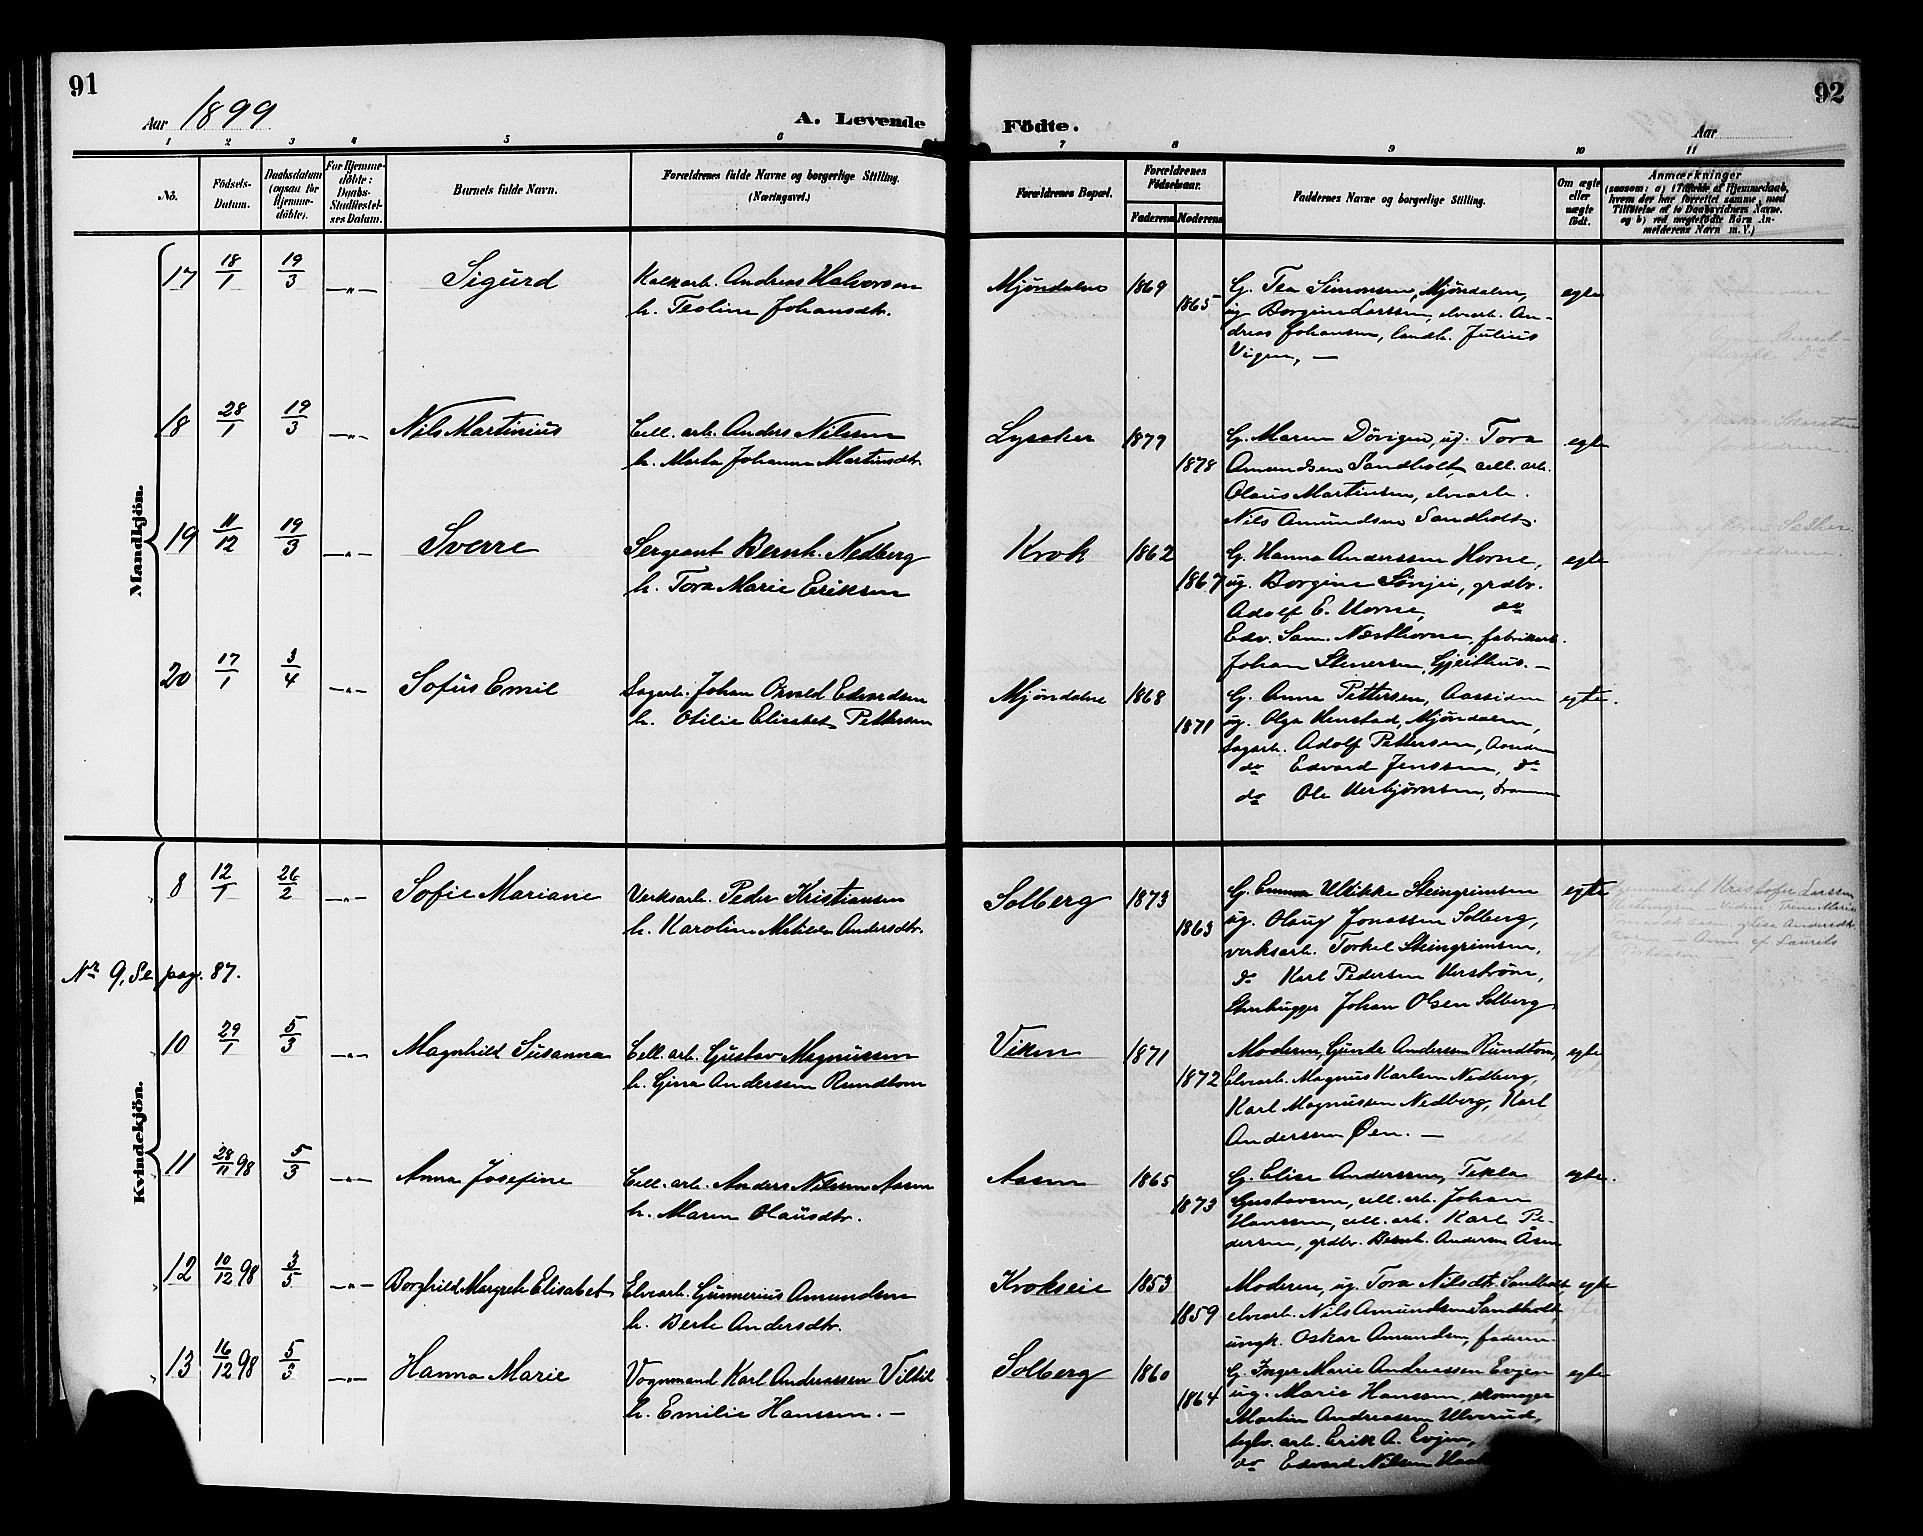 91
92
Aar 1899
A. Levende
Födte.
Aar
1 2 3 4 5 6 7 8 9 10 11
Nō.
Födsels-
Datum.
Daabsdatum
(ogsaa for
Hjemme-
döbte).
For Hjemme-
döbte:
Daabs-
Stadfæstel-
ses Datum.
Barnets fulde Navn.
Forældrenes fulde Navne og borgerlige Stilling.
(Næringsvei.)
Forældrenes Bopæl.
Forældrenes
Födselsaar.
Faderens Moderens
Faddernes Navne og borgerlige Stilling.
Om ægte
eller
uægte
födt.
Anmærkninger
(saasom: a) i Tilfælde af Hjemmedaab,
hvem der har forrettet samme, med
Tilföielse af to Daabsvidners Navne,
og b) ved uægtefödte Börn An-
melderens Navn m. V.)
Mandkjön.
17 18/1 19/3 —„— Sigurd
Kalkarb. Andreas Halvorsen
h. Teoline Johansdtr.
Mjøndalen 1869 1865
G. Tea Simonsen, Mjøndalen,
ug Borgine Larssen, elvarb. An-
dreas Johansen, landh. Julius
Vigen, —
egte
18 28/1 19/3 —„— Nils Martinius
Cell. arb. Anders Nilssen
h. Marta Johanne Martinsdtr.
Lysaker 1877 1878
G. Maren Dövigen, ug. Tora
Amundsen Sandholt, cell. arb.
Olaus Martinsen, elvearb.
Nils Amundsen Sandholt.
egte
19 11/12 19/3 —„— Sverre
Sergeant Bernh. Nedberg
h. Tora Marie Eriksen
Krok 1862 1867
G. Hanna Anderssen Horne,
ug. Borgine Sönju, grdbr.
Adolf E. Horne, do
Edv. Sam. Næsthorne, fabrikarb.
Johan Stenersen, Gjeithus. —
egte
20 17/1 3/4 —„— Sofus Emil
Sagarb. Johan Osvald Edvardsen
h. Otilie Elisabet Pettersen
Mjøndalen 1868 1871
G. Anna Pettersen, Aassiden
ug. Olga Henstad, Mjøndalen,
Sagarb. Adolf Pettersen,
do Edvard Jenssen, do
do Ole Herbjørnsen,
egte.
Kvindekjön.
8 12/1 26/2 —„— Sofie Mariane
Verksarb. Peder Kristiansen
h. Karoline Matilde Andersdtr.
Solberg 1873 1863
G. Emma Ulrikke Steingrimsen
ug. Olaug Jonassen Solberg,
verksarb. Torkel Steingrimsen,
do Karl Pedersen Verström,
Stenhugger Johan Olsen Solberg
egte
Nr 9, Se pag. 87.
10 29/1 5/3 —„— Magnhild Susanna
Cell. arb. Gustav Magnussen
h. Gina Anderssen Rundtom
Viken 1871 1872
Moderen, Gunda Anderssen Rundtom,
Elvearb. Magnus Karlsen Nedberg,
Karl Magnussen Nedberg, Karl
Anderssen Øen. —
egte
11 28/11 98 5/3 —„— Anna Josefine
Cell. arb. Anders Nilssen Aasen
h. Maren Olausdtr.
Aasen 1865 1873
G. Elise Anderssen, Tekla
Gustavsen, cell. arb. Johan
Hanssen, cell. arb. Karl Pe-
dersen, grdbr. Bernh. Andersen Åsen
egte.
12 10/12 98 3/5 —„— Borghild Margrete Elisabet
Elvearb. Gunnerius Amundsen
h. Berte Andersdtr.
Krokseie 1853 1859
Moderen, ug. Tora Nilsdtr. Sandholt,
elvearb. Nils Amundsen Sandholt,
ungk. Oskar Amundsen, faderen
egte
13 16/12 98 5/3 —„— Hanna Marie
Vognmand Karl Andreassen Viltil
h. Emilie Hanssen. —
Solberg 1860 1864
G. Inger Marie Andreassen Evjen
ug. Marie Hanssen, skomager
Martin Andreassen Ulverud,
teglv. arb. Erik A. Evjen,
do Edvard Nilsen
egte